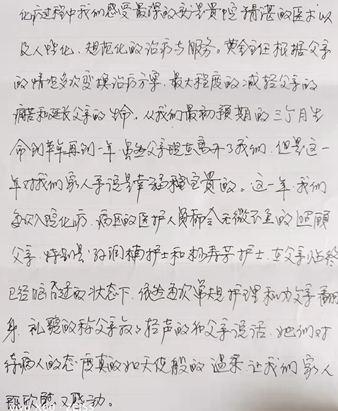 化疗过程中我们感受最深的就是黄主任精湛的医术以
及人性化、规范化的治疗与服务。黄主任根据父亲
的情况多次变换治疗方案，最大程度的减轻父亲的
痛苦和延长父亲的生命。从我们最初预期的三个月生
命到半年再到一年 虽然父亲现在离开了我们，但是这一
年对我们家人来说是幸福和宝贵的。这一年我们
每次入院化疗，病区的医护人员都会无微不至的照顾
父亲，特别是 护士和杨寿芳护士，在父亲临终
已经昏迷的状态下，依然每次单规护理和为父亲翻
身，礼貌的称父亲叔，轻声的和父亲说话，她们对
待病人的态度真的如天使般的温柔 让我们家人
既欣慰又感动。